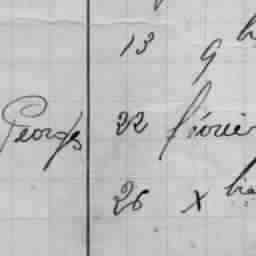 13 9b
Georges 22 février
26 Xbre